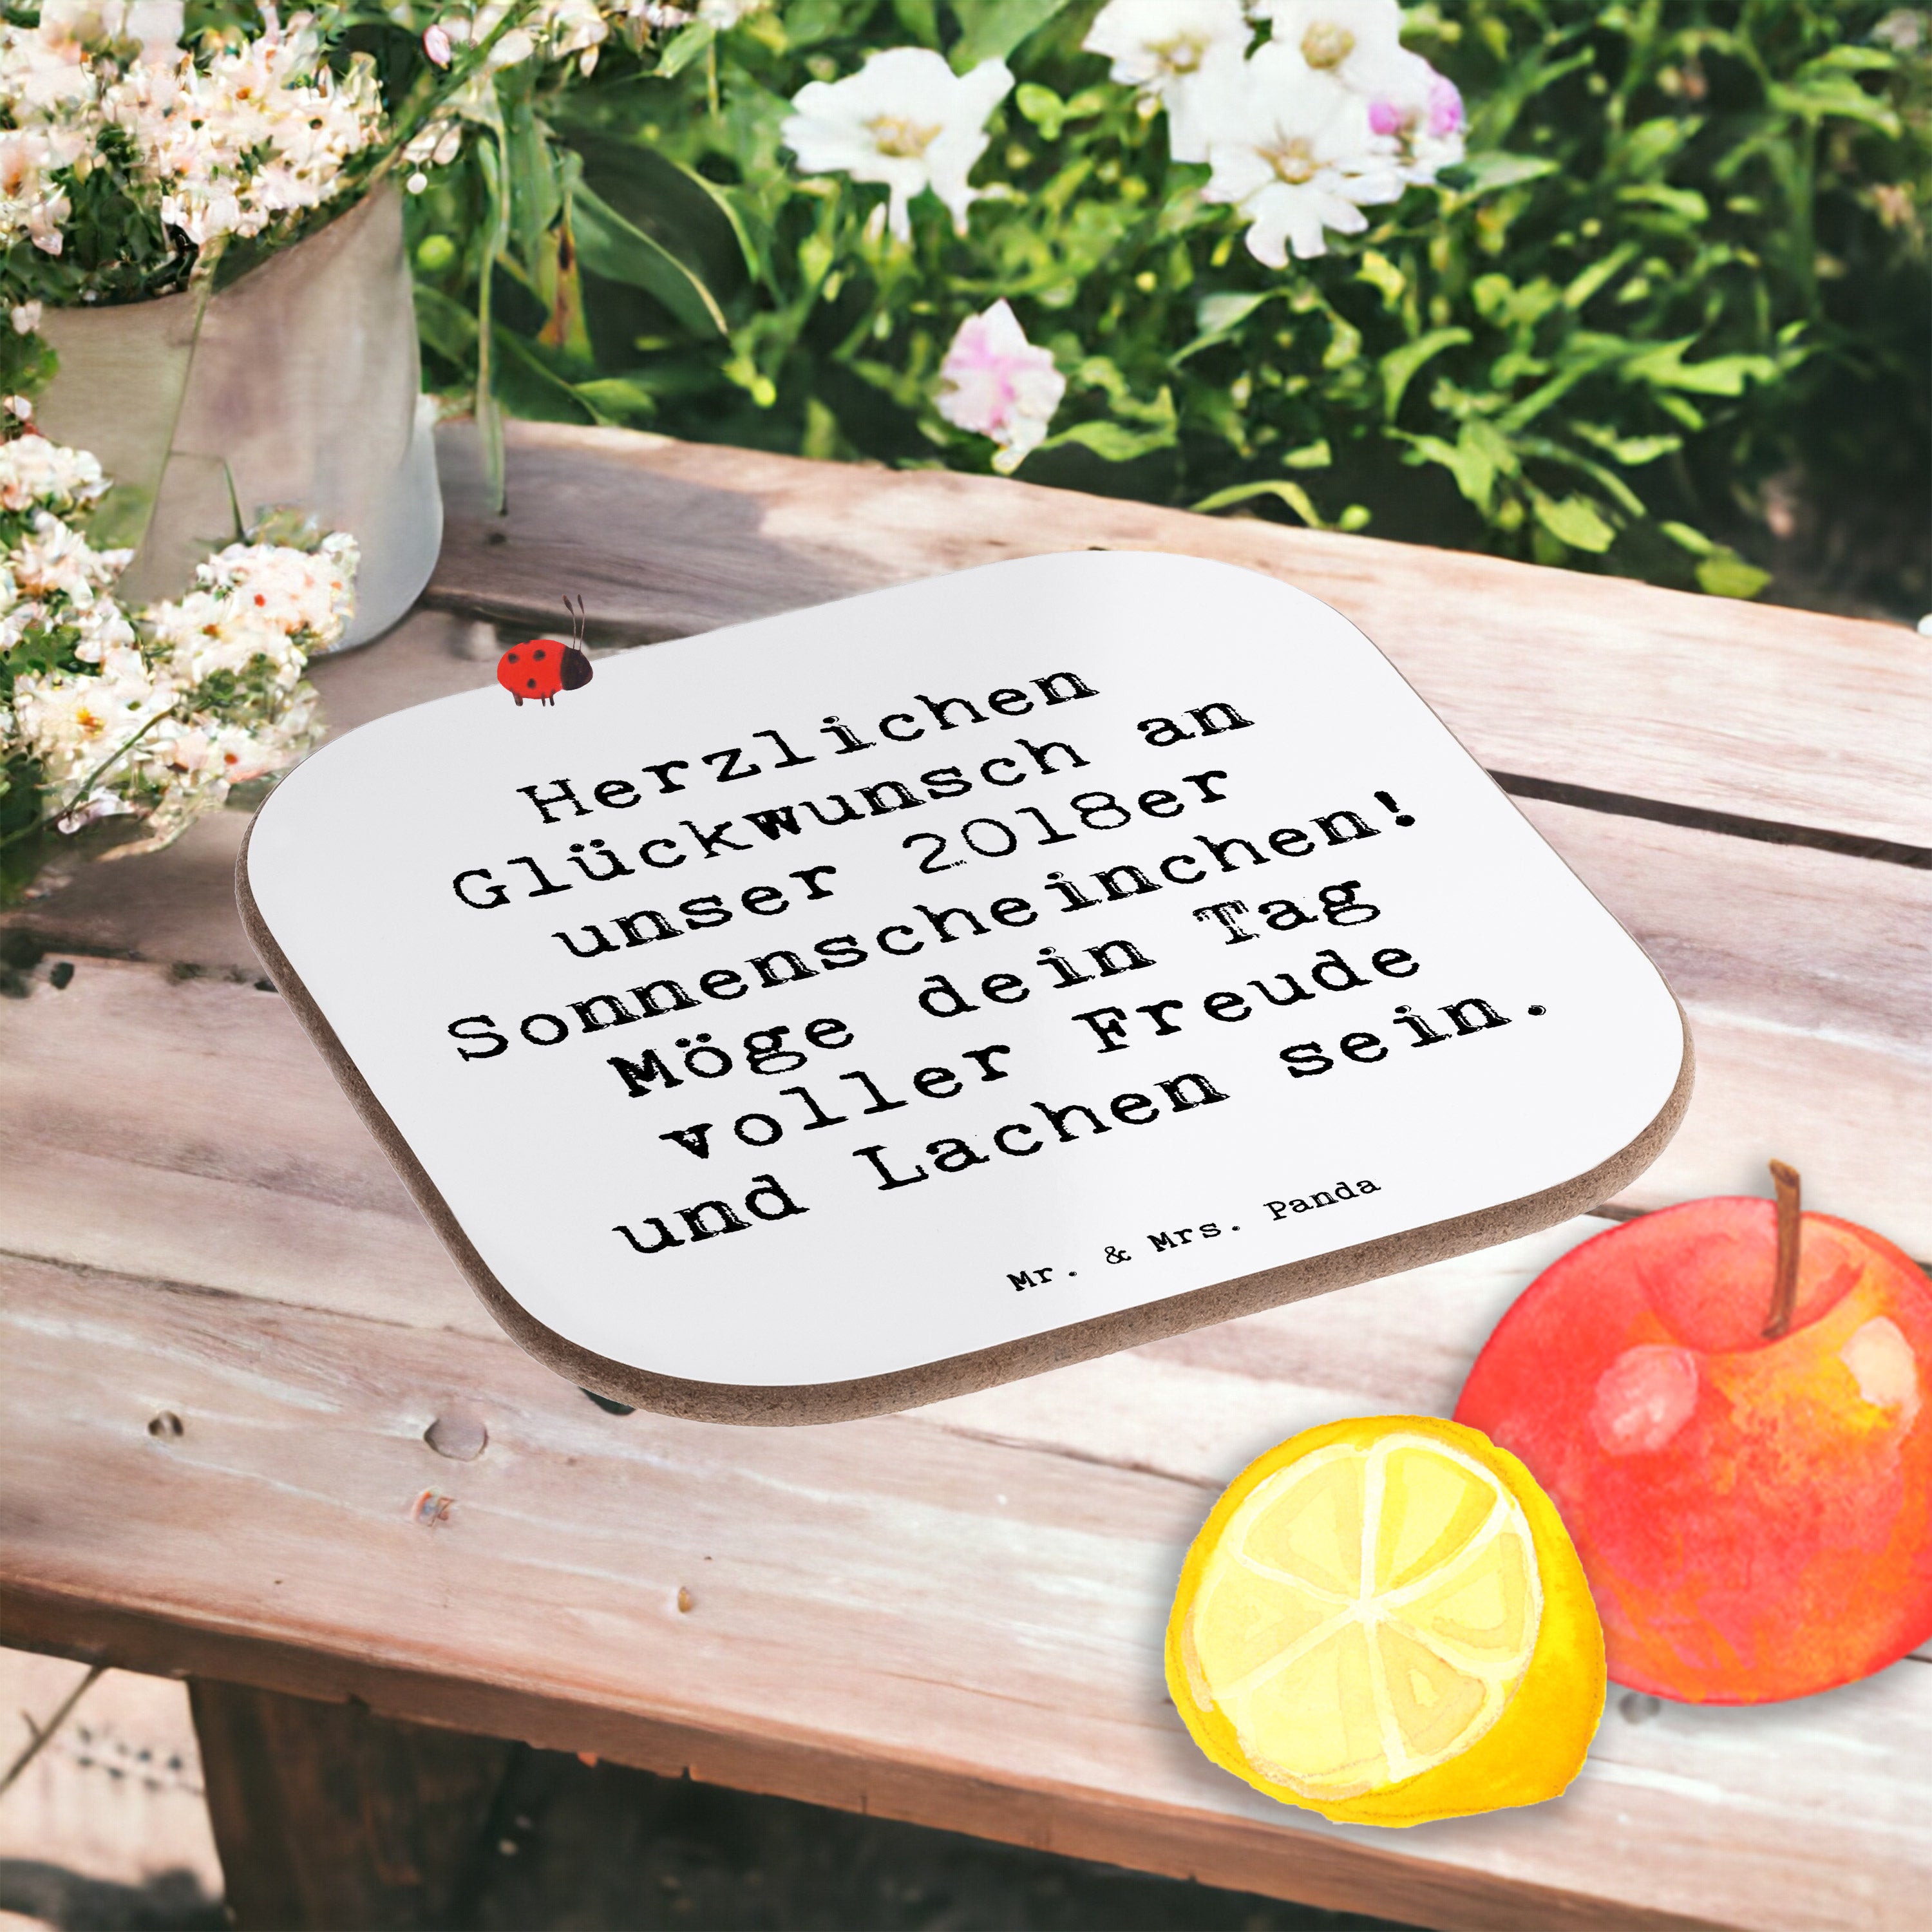 Herzlichen
Glückwunsch an
unser 2018er
Sonnenscheinchen!
Möge dein Tag
voller Freude
und Lachen sein.
Mr. & Mrs. Panda